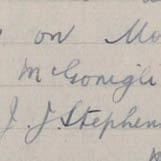 on
McGonigl
J. J. Stephen